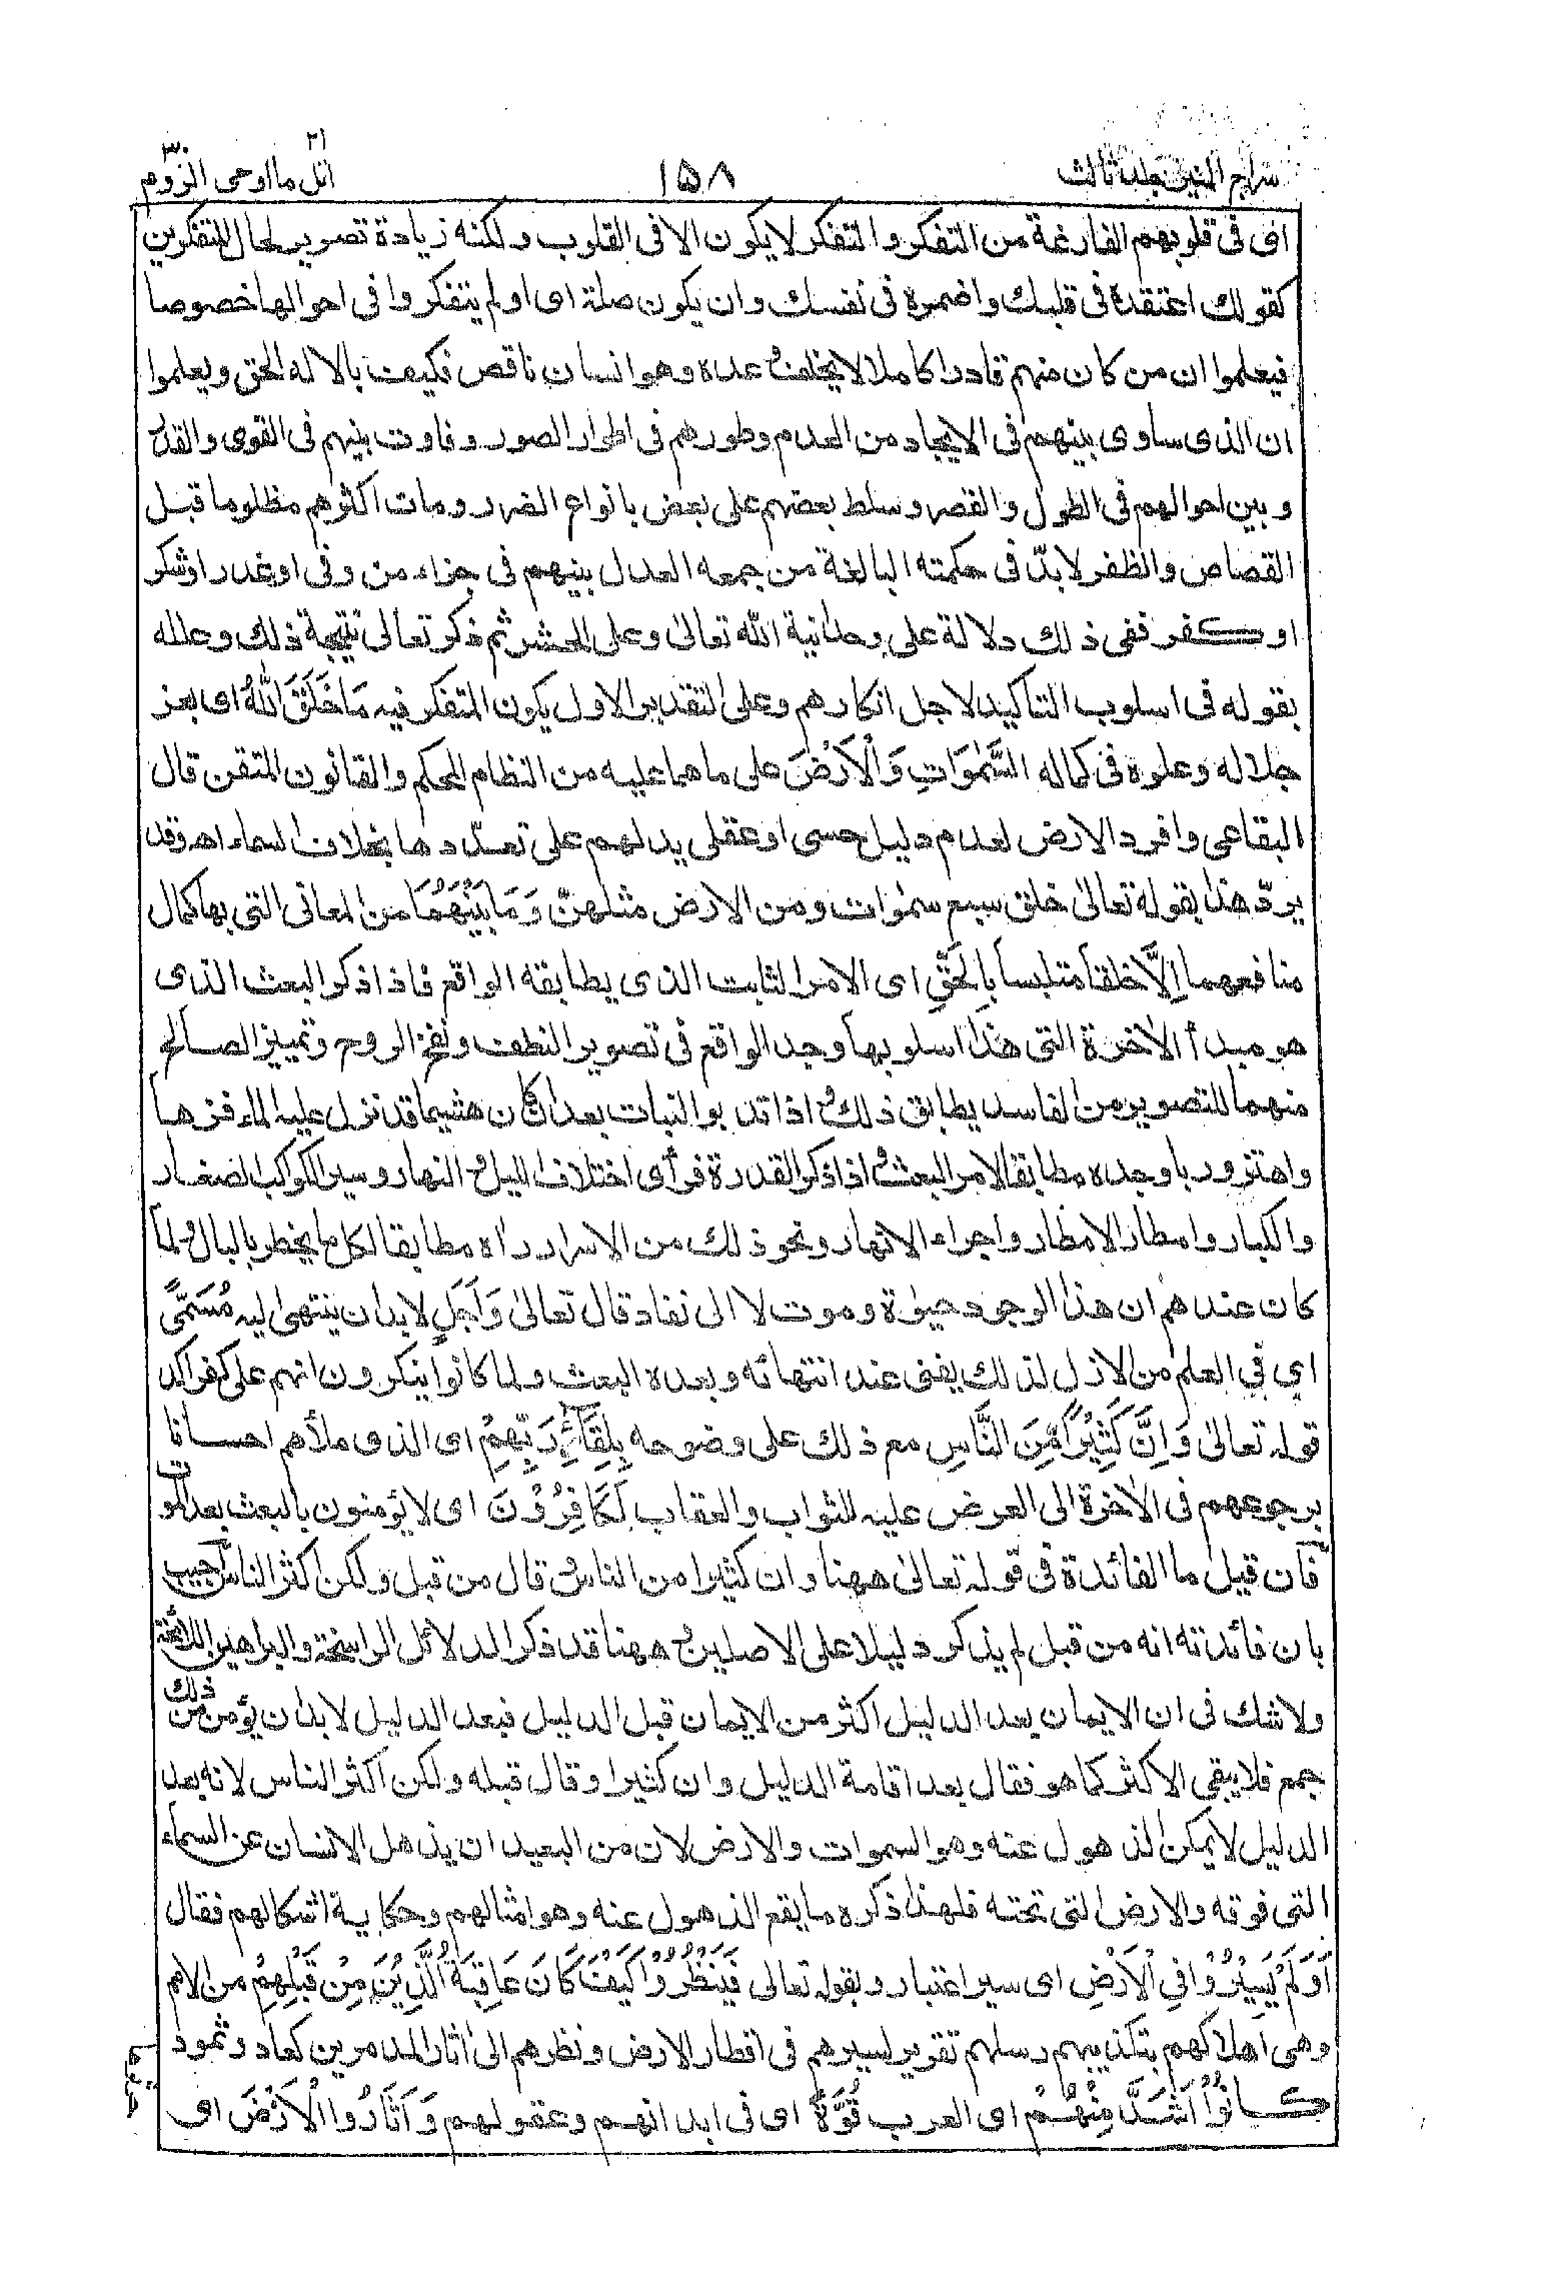 سراج المنير جلد ثالث
١٥٨
اتل ما اوحى ٢١ الروم ٣٠
اى فى قلوبهم الفارغة من التفكر والتفكر لا يكون الا فى القلوب ولكنه زيادة تصوير لحال المتفكرين
كقولك اعتقده فى قلبك واضمره فى نفسك وان يكون صلة اى اولم يتفكروا فى احوالها خصوصا
فيعلموا ان من كان منهم قادرا كاملا لا يخلف وعده وهو انسان ناقص فكيف بالاله الحق ويعلموا
ان الذى ساوى بينهم فى الايجاد من العدم وطورهم فى اطوار الصور وفاوت بينهم فى القوى والقدر
وبين احوالهم فى الطول والقصر وسلط بعضهم على بعض بانواع الضرر ومات اكثرهم مظلوما قبل
القصاص والظفر لابدّ فى حكمته البالغة من جمعه العدل بينهم فى جزاء من وفى او غدر او شكر
او كفر ففى ذلك دلالة على وحدانية الله تعالى وعلى الحشر ثم ذكر تعالى نتيجة ذلك وعلله
بقوله فى اسلوب التاكيد لاجل انكارهم وعلى التقدير الاول يكون المتفكر فيه مَا خَلَقَ اللهُ اى بعز
جلاله وعلوه فى كماله السَّمٰوَاتِ وَالْاَرْضَ على ما هما عليه من النظام المحكم والقانون المتقن قال
البقاعى وافرد الارض لعدم دليل حسى او عقلى يدلهم على تعدّدها بخلاف السماء اهـ وقد
يردّ هذا بقوله تعالى خلق سبع سمٰوات ومن الارض مثلهنّ وَمَا بَيْنَهُمَا من المعانى التى بها كمال
منافعهما اِلَّا خلقا متلبسا بِالْحَقِّ اى الامر الثابت الذى يطابقه الواقع فاذا ذكر البعث الذى
هو مبدأ الاٰخرة التى هذا اسلوبها وجد الواقع فى تصوير النطف ونفخ الروح وتمييز الصالح
منهما للتصوير من الفاسد يطابق ذلك و اذا تدبر النبات بعد ان كان هشيما قد نزل عليه الماء فزها
واهتز وربا وجده مطابقا لامر البعث و اذا ذكر القدرة فرأى اختلاف الليل و النهار وسير الكواكب الصغار
والكبار وامطار الامطار واجراء الانهار ونحو ذلك من الاسرار راٰه مطابقا لكل ما يخطر بالبال و لما
كان عندهم ان هذا الوجود حيٰوة وموت لا الى نفاد قال تعالى وَاَجَلٍ لابد ان ينتهى اليه مُسَمًّى
اى فى العلم من الازل لذلك يفنى عند انتهائه وبعده البعث ولما كانوا ينكرون انهم على كفر اكد
قوله تعالى وَاِنَّ كَثِيْرًا مِّنَ النَّاسِ مع ذلك على وضوحه بِلِقَآئِ رَبِّهِمْ اى الذى ملأهم احسانا
برجوعهم فى الاٰخرة الى العرض عليه للثواب والعقاب لَكَافِرُوْنَ اى لا يؤمنون بالبعث بعد الموت
فان قيل ما الفائدة فى قوله تعالى ههنا وان كثيرا من الناس و قال من قبل ولكن اكثر الناس اجيب
بان فائدته انه من قبل لم يذكر دليلا على الاصلين و ههنا قد ذكر الدلائل الراسخة والبراهين اللائحة
ولا شك فى ان الايمان بعد الدليل اكثر من الايمان قبل الدليل فبعد الدليل لابد ان يؤمن من ذلك
جمع فلا يبقى الاكثر كما هو فقال بعد اقامة الدليل وان كثيرا وقال قبله ولكن اكثر الناس لانه بعد
الدليل لا يمكن الذهول عنه وهو السموات والارض لان من البعيد ان يذهل الانسان عن السماء
التى فوقه والارض التى تحته فلهذا ذكره ما يقع الذهول عنه وهو امثالهم وحكاية اشكالهم فقال
اَوَلَمْ يَسِيْرُوْا فِى الْاَرْضِ اى سير اعتبار ولقوله تعالى فَيَنْظُرُوْا كَيْفَ كَانَ عَاقِبَةُ الَّذِيْنَ مِنْ قَبْلِهِمْ من الامم
وهى اهلاكهم بتكذيبهم رسلهم تقرير لسيرهم فى اقطار الارض ونظرهم الى اٰثار المدمرين كعاد وثمود
كَانُوْا اَشَدَّ مِنْهُمْ اى العرب قُوَّةً اى فى ابدانهم وعقولهم وَاَثَارُوا الْاَرْضَ اى